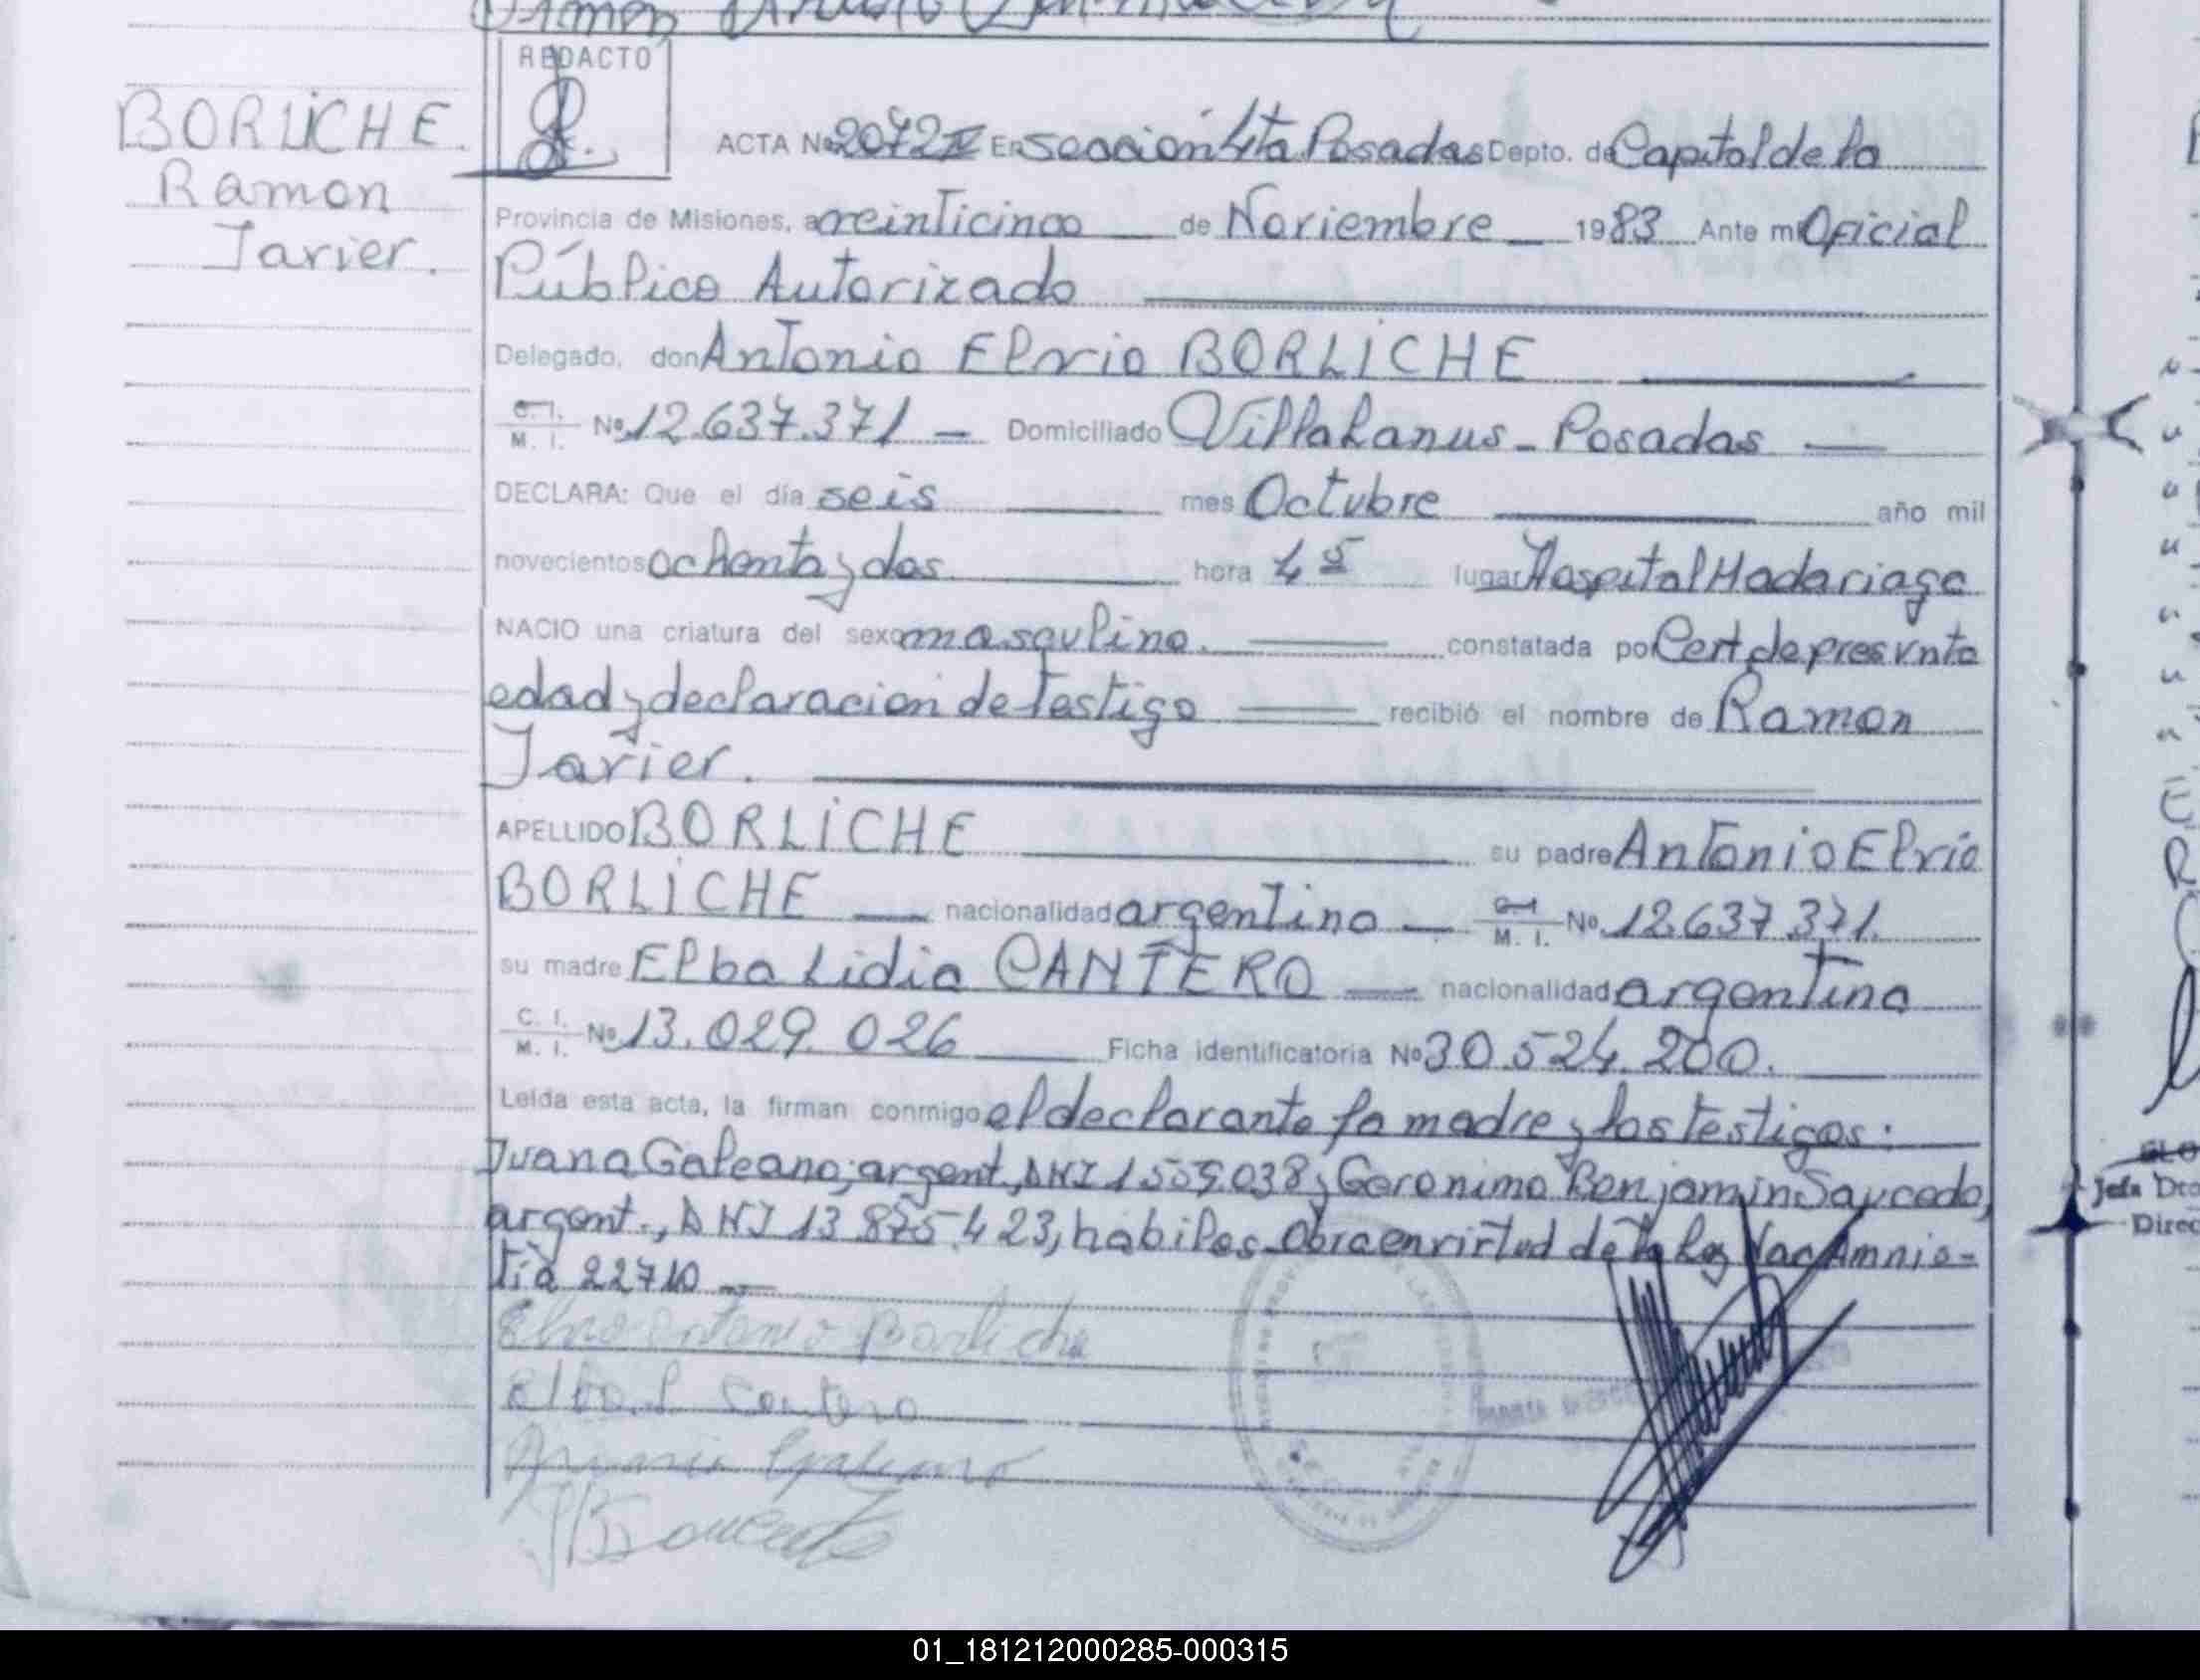 REDACTO
BORLICHE.
Ramon
Javier.
ACTA Nº 2072 En seccion 4ta Posadas Depto. de Capital de la
Provincia de Misiones, a veinticinco de Noviembre 1983 Ante mi Oficial
Público Autorizado
Delegado, don Antonio Elvio BORLICHE
C. I.
M. I. Nº 12.637.371 Domiciliado Villa Lanus - Posadas
DECLARA: Que el día seis mes Octubre año mil
novecientos ochenta y dos hora 4 lugar Hospital Madariaga
NACIO una criatura del sexo masculino. constatada por Cert. de presunta
edad y declaracion de testigo recibió el nombre de Ramon
Javier.
APELLIDO BORLICHE su padre Antonio Elvio
BORLICHE nacionalidad argentino C. I.
M. I. Nº 12.637.371.
su madre Elba Lidia CANTERO nacionalidad argentina
C. I.
M. I. Nº 13.029.026 Ficha identificatoria Nº 30.524.200.
Leída esta acta, la firman conmigo el declarante la madre y los testigos:
Juana Galeano, argent., DNI 1559.038 y Geronimo Benjamin Saucedo,
argent., DNI 13.875.423, habiles. Obra en virtud de la Ley Nac Amnis-
tia 22710
Elvio antonio Borliche
Elba L Cantero
Galeano
Jefa
Direc
01_181212000285-000315